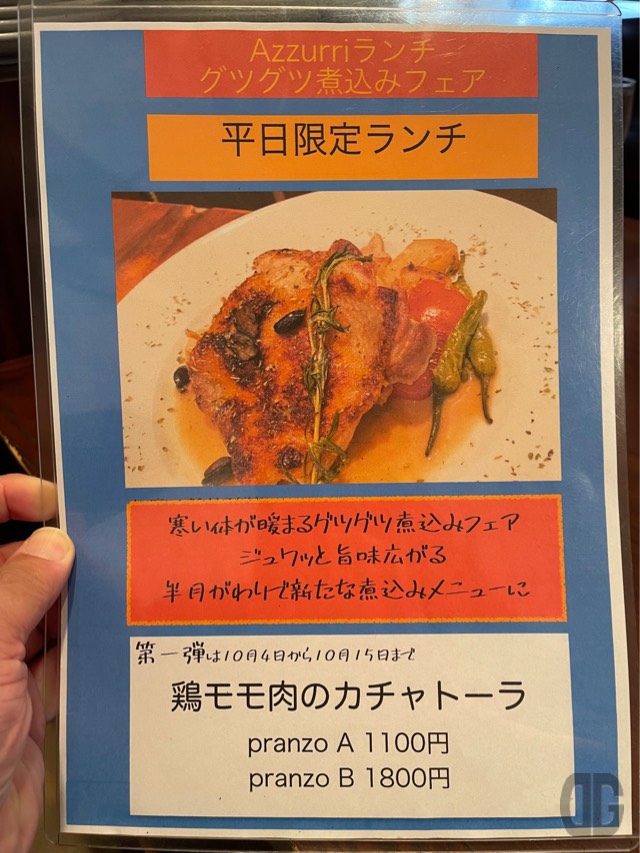 Azzurriランチ
グツグツ煮込みフェア
平日限定ランチ
寒い体が暖まるグツグツ煮込みフェア
ジュワッと旨味広がる
半月がわりで新たな煮込みメニューに
第一弾は10月4日から10月15日まで
鶏モモ肉のカチャトーラ
pranzo A 1100円
pranzo B 1800円
DG